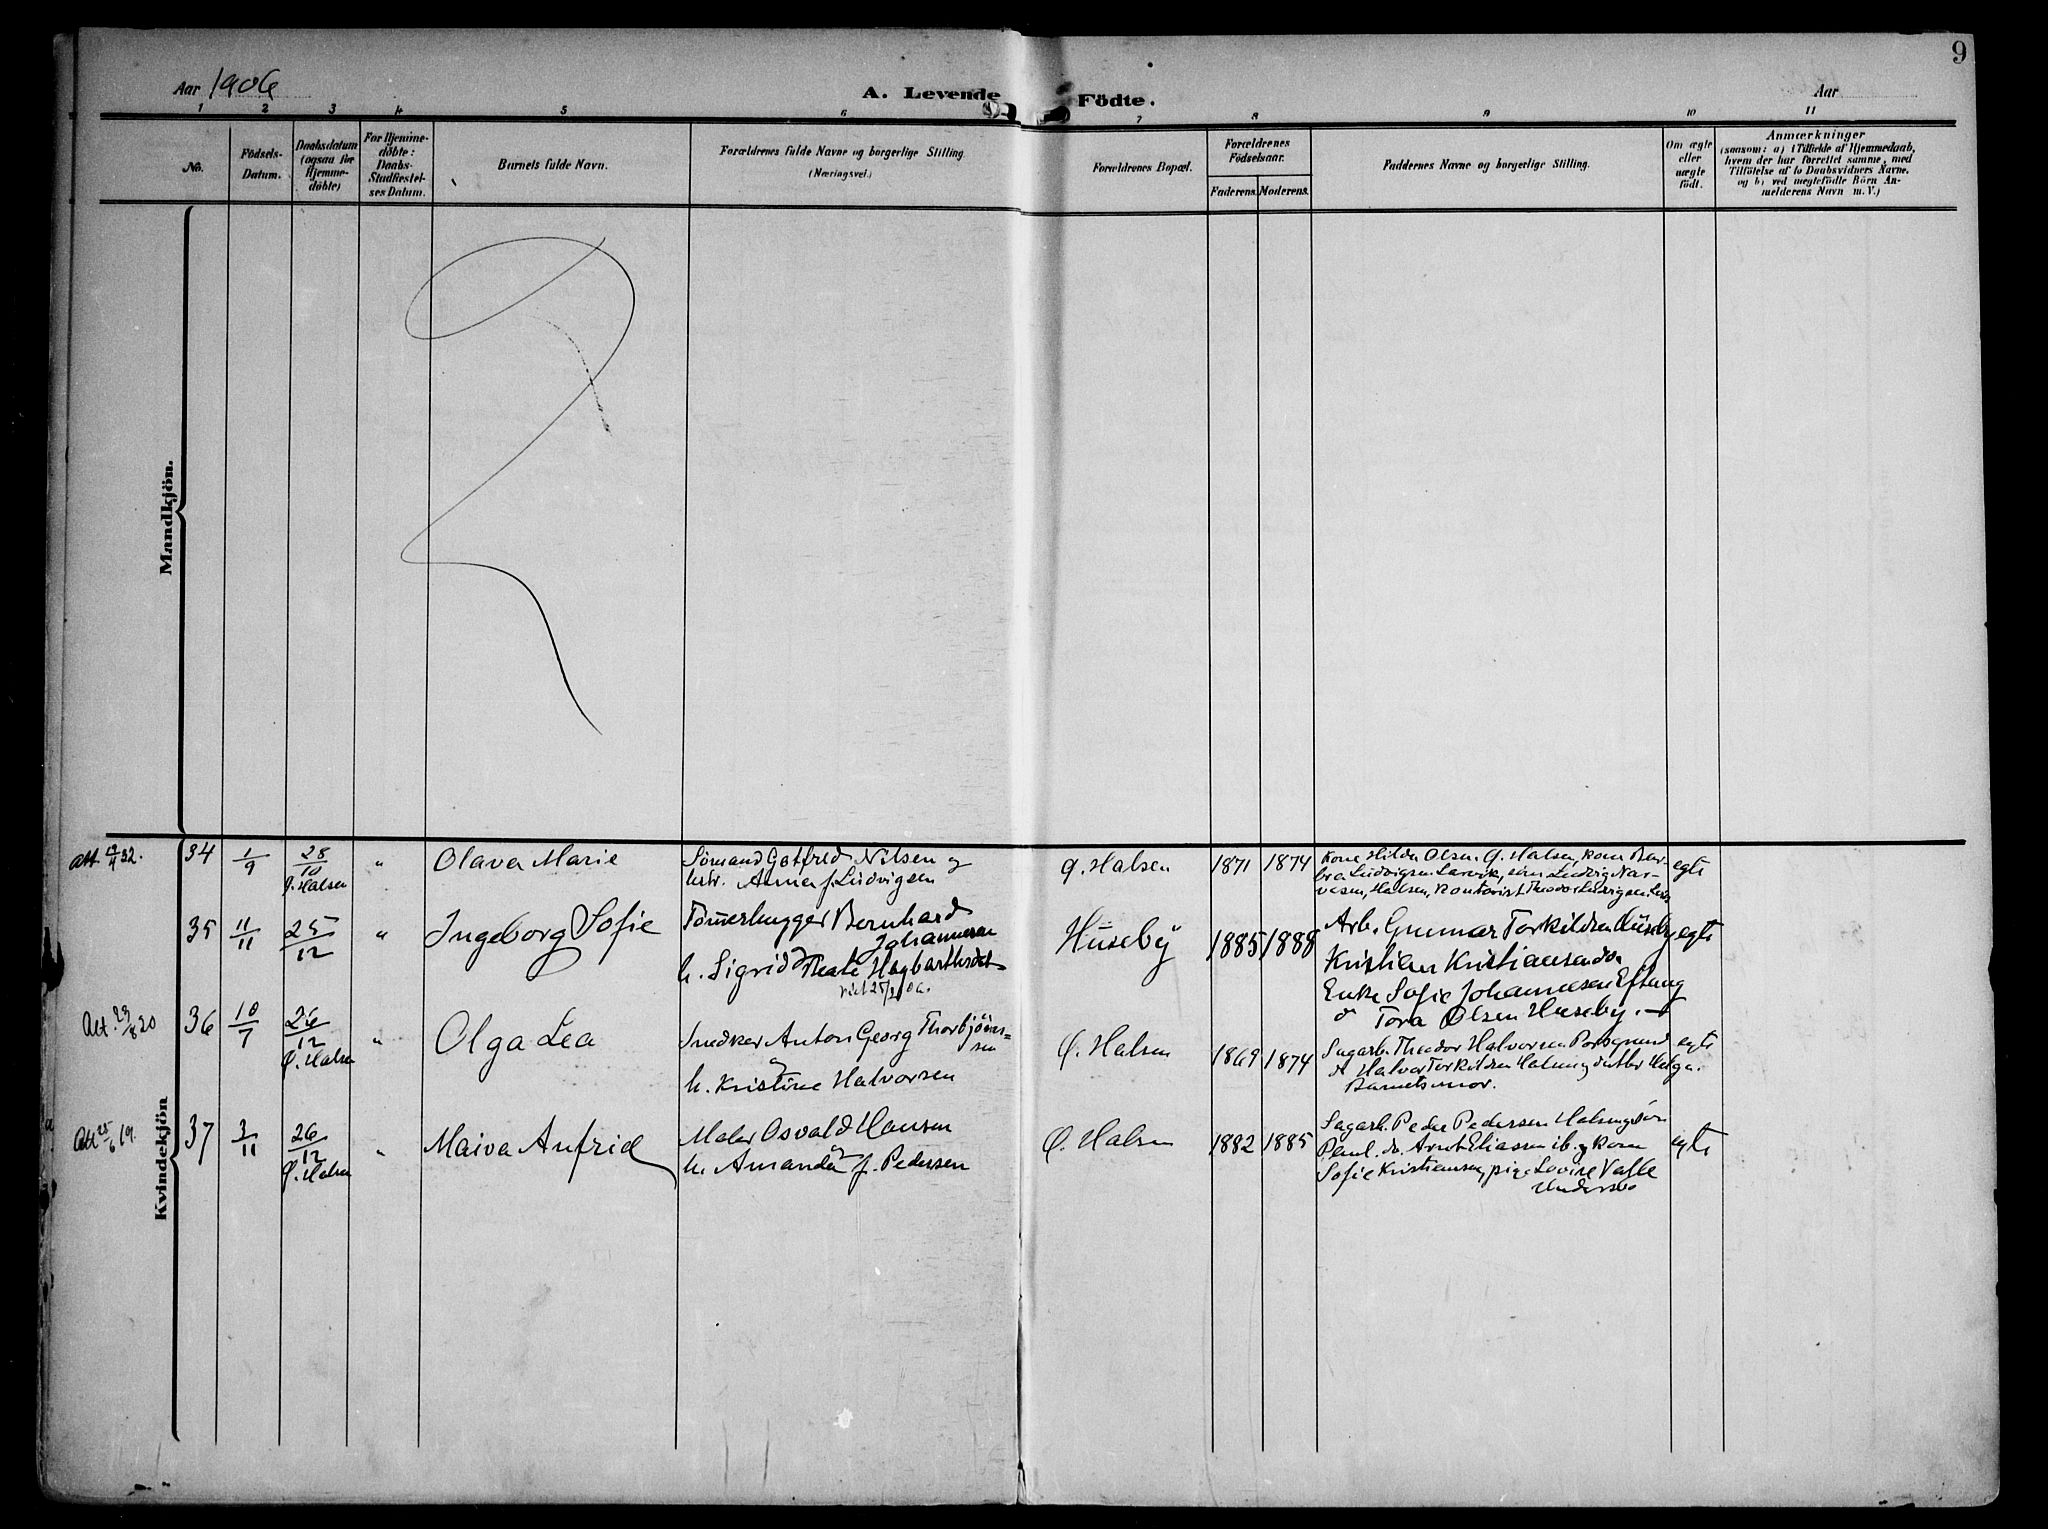 9
Aar 1906
A. Levende Födte.
Aar
1 2 3 4 5 6 7 8 9 10 11
No.
Födsels-
Datum.
Daabsdatum
(ogsaa for
Hjemme-
döbte)
For Hjemme-
döbte:
Daabs-
Stadfæstel-
ses Datum.
Barnets fulde Navn.
Forældrenes fulde Navne og borgerlige Stilling
(Næringsvei.)
Forældrenes Bopæl.
Forældrenes
Födselsaar.
Faderens. Moderens.
Faddernes Navne og borgerlige Stilling.
Om ægte
eller
uægte
födt.
Anmærkninger
(saasom: a) i Tilfælde af Hjemmedaab,
hvem der har forrettet samme, med
Tilföielse af to Daabsvidners Navne.
og b) ved uægtefödte Börn An-
melderens Navn m. V.)
Mandkjön.
Kvindekjön
34 1/9 28/10 " Olava Marie
Ø. Halsen
Sömand Gotfred Nilsen og
hstr. Anna f. Ludvigsen
Ø. Halsen 1871 1874
Kone Hilda Olsen Ø. Halsen, kone Bar-
bra Ludvigsen Larvik, Ludvig Nar-
vesen, Halsen, Kontorist Theodor Ludvigsen
egte
35 11/11 25/12 " Ingeborg Sofie
Tömerhugger Bernhard
Johannesen
h. Sigrid Thea
Huseby 1885 1888
Arb. Gunnar Torkildsen Huseby
Kristian Kristiansen do
Enke Sofie Johannesen Eftang
o Tora Olsen Huseby.
egte
Att. 23/8 20
36 10/7 26/12 " Olga Lea
Ø. Halsen
Snedker Anton Georg Thorbjörn-
sen
h. Kristine Halvorsen
Ø. Halsen 1869 1874
Sagarb. Theodor Halvorsen Porsgrund
Halvor Torkildsen Halsen
Barnets mor.
egte
Att 25/6 19.
37 3/11 26/12 " Maiva Anfrid
Ø. Halsen
Maler Osvald Hansen
h. Amanda f. Pedersen
Ø. Halsen 1882 1885
Sagarb. Peder Pedersen Halsen
Paul. do. Arnt Eliassen ib. og kone
Sofie Kristiansen, pige Lovise Valle
egte